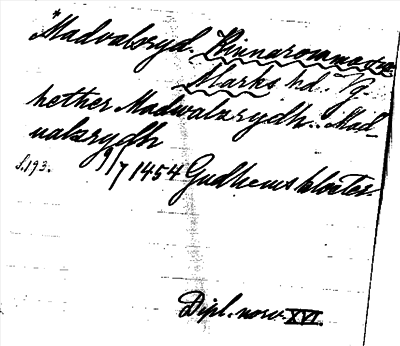 "Madvalsryd. Kinnarommasre
Marks hd. Vg.
hether Madwalzrydh.. Mad-
ualzrydh
s. 193. 9/7 1454 Gudhems kloster
Dipl. norv. XVI.